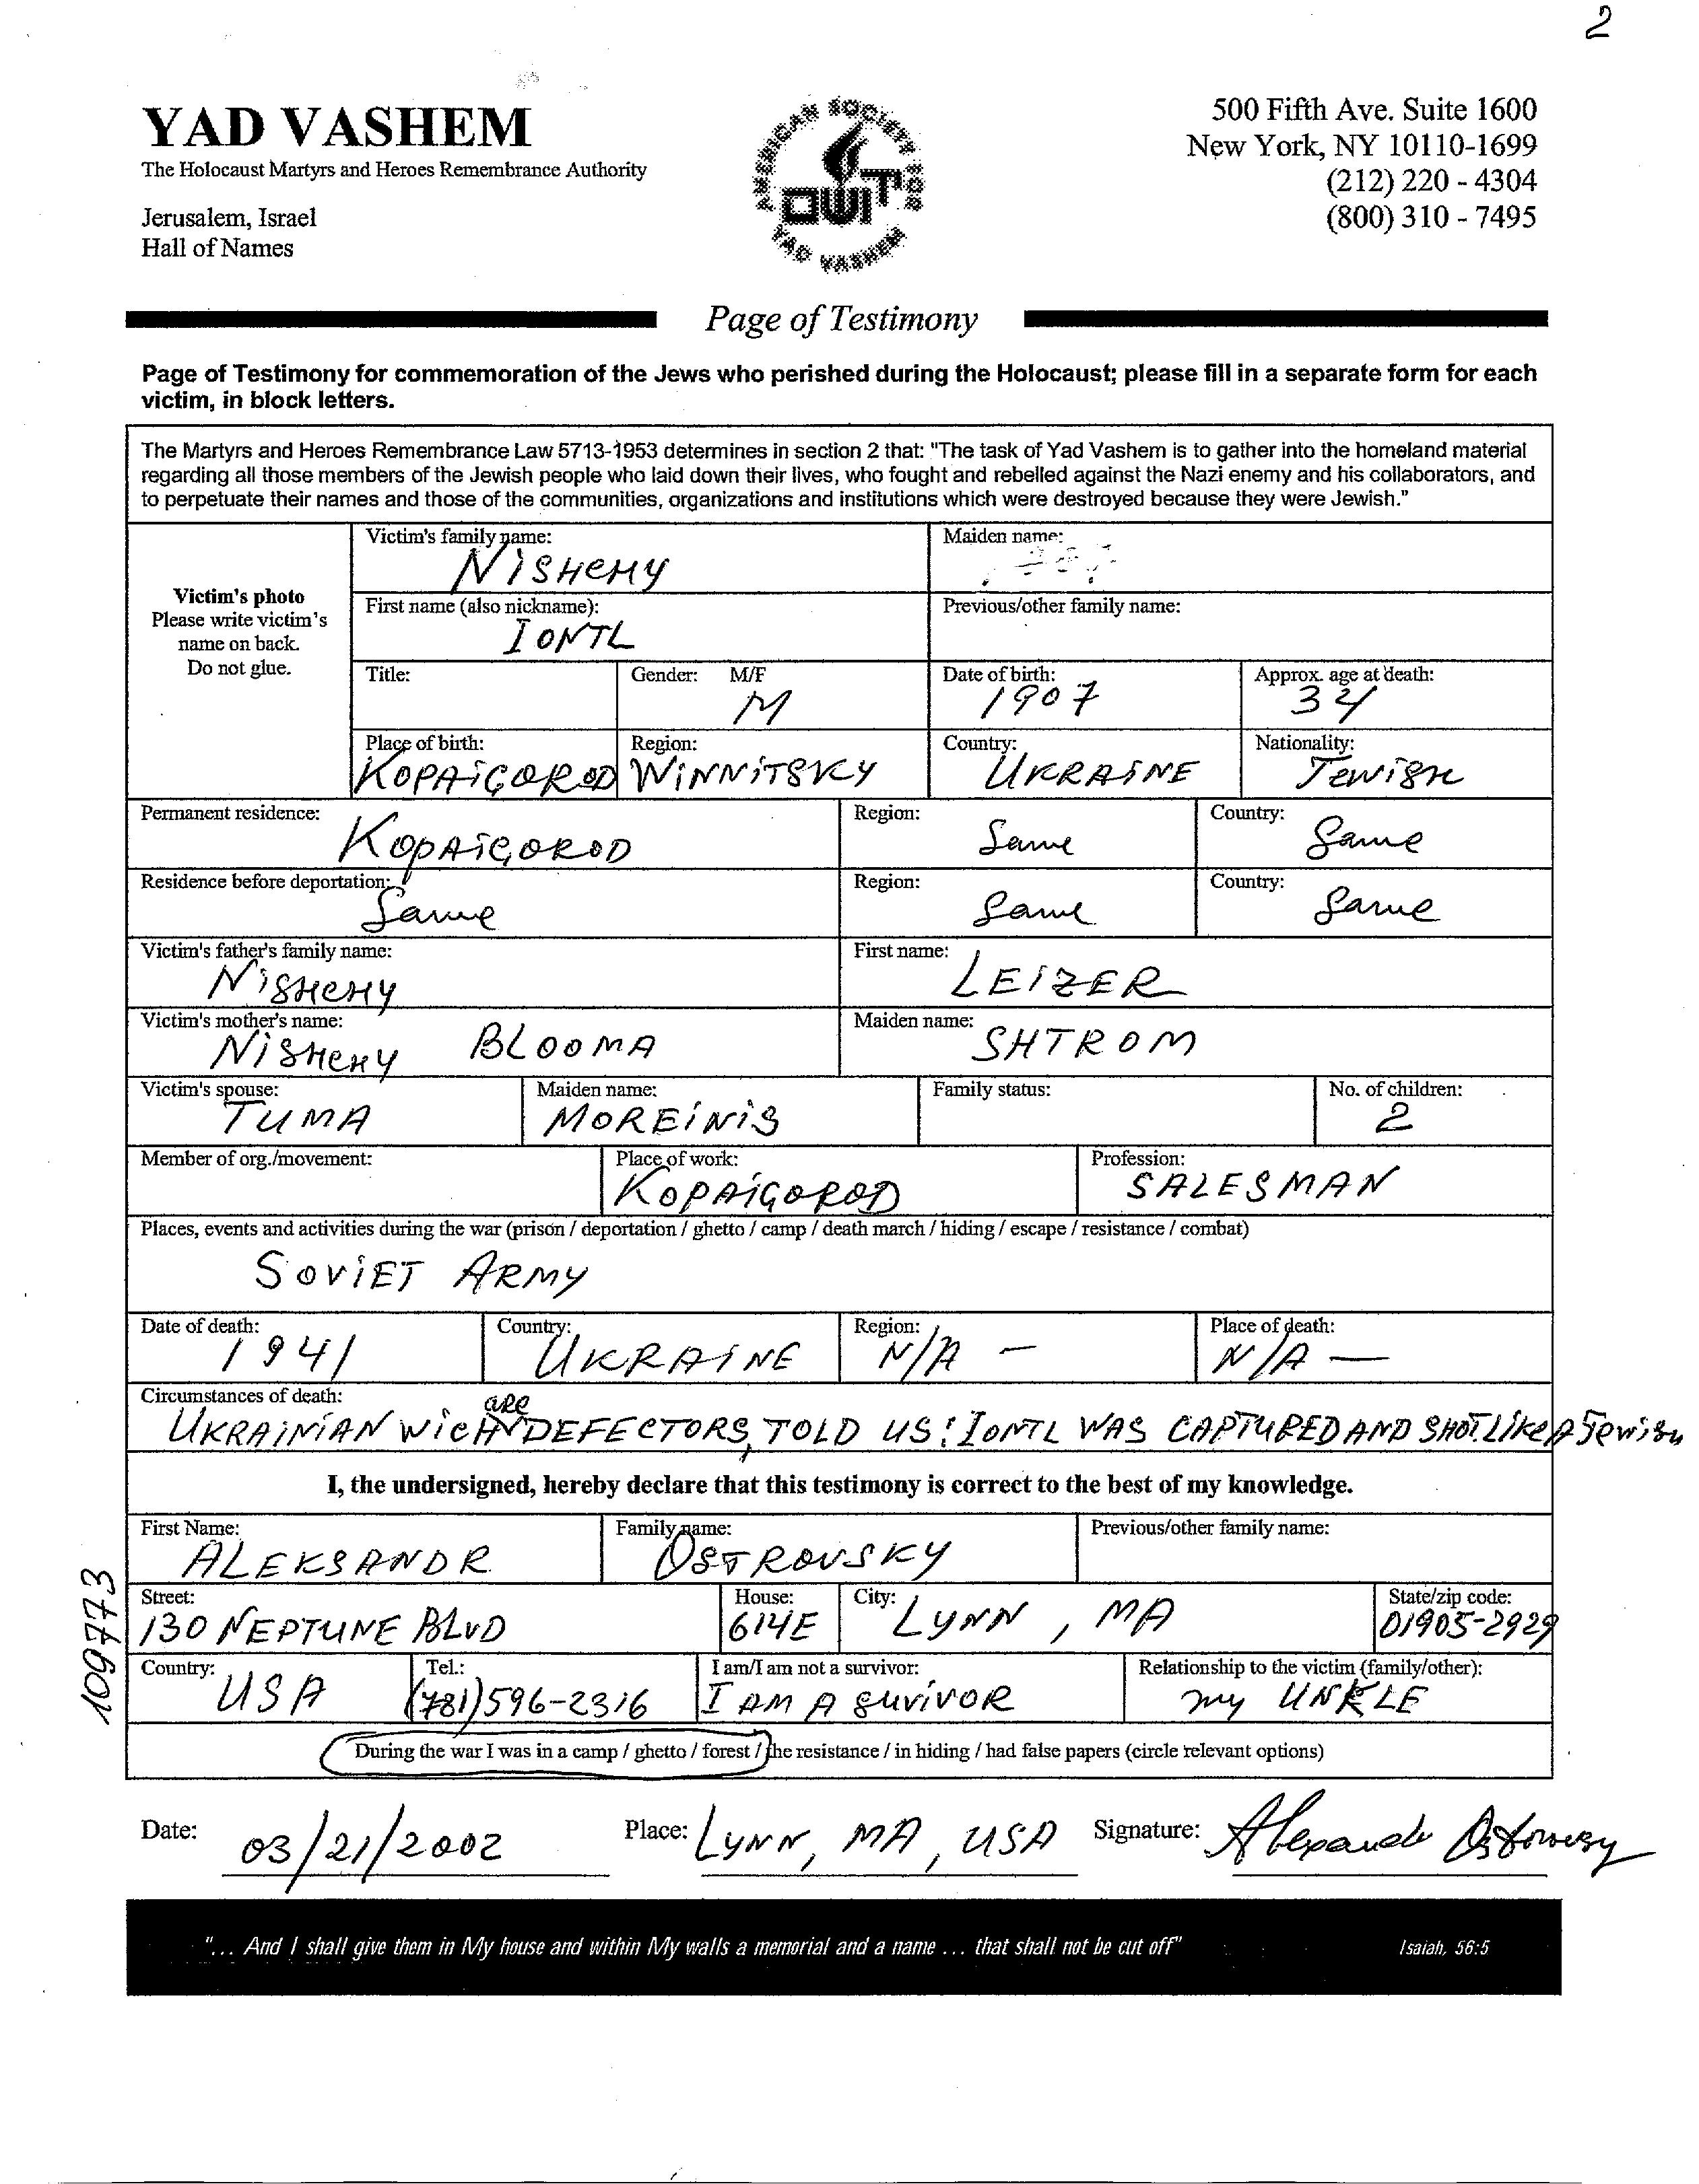 2
YAD VASHEM
The Holocaust Martyrs and Heroes Remembrance Authority
Jerusalem, Israel
Hall of Names
AMERICAN SOCIETY FOR YAD VASHEM
יד ושם
500 Fifth Ave. Suite 1600
New York, NY 10110-1699
(212) 220 - 4304
(800) 310 - 7495
Page of Testimony
Page of Testimony for commemoration of the Jews who perished during the Holocaust; please fill in a separate form for each
victim, in block letters.
The Martyrs and Heroes Remembrance Law 5713-1953 determines in section 2 that: "The task of Yad Vashem is to gather into the homeland material
regarding all those members of the Jewish people who laid down their lives, who fought and rebelled against the Nazi enemy and his collaborators, and
to perpetuate their names and those of the communities, organizations and institutions which were destroyed because they were Jewish."
Victim's photo
Please write victim's
name on back.
Do not glue.
Victim's family name: Maiden name:
NISHEHY
First name (also nickname): Previous/other family name:
IONTL
Title: Gender: M/F Date of birth: Approx. age at death:
M 1907 34
Place of birth: Region: Country: Nationality:
KOPAIGOROD WINNITSKY UKRAINE JEWISH
Permanent residence: Region: Country:
KOPAIGOROD Same Same
Residence before deportation: Region: Country:
Same Same Same
Victim's father's family name: First name:
NISHEHY LEIZER
Victim's mother's name: Maiden name:
NISHEHY BLOOMA SHTROM
Victim's spouse: Maiden name: Family status: No. of children:
TUMA MOREINIS 2
Member of org./movement: Place of work: Profession:
KOPAIGOROD SALESMAN
Places, events and activities during the war (prison / deportation / ghetto / camp / death march / hiding / escape / resistance / combat)
SOVIET ARMY
Date of death: Country: Region: Place of death:
1941 UKRAINE N/A - N/A —
Circumstances of death:
UKRAINIAN WICH ARE DEFECTORS, TOLD US: IONTL WAS CAPTURED AND SHOT. LIKE A JEWISH
I, the undersigned, hereby declare that this testimony is correct to the best of my knowledge.
First Name: Family name: Previous/other family name:
ALEKSANDR OSTROVSKY
Street: House: City: State/zip code:
130 NEPTUNE BLVD 614E LYNN, MA 01905-2929
Country: Tel.: I am/I am not a survivor: Relationship to the victim (family/other):
USA (781)596-2316 I AM A SUVIVOR my UNKLE
During the war I was in a camp / ghetto / forest / the resistance / in hiding / had false papers (circle relevant options)
109773
Date: 03/21/2002 Place: LYNN, MA, USA Signature: Alexandr Ostrovsky
"... And I shall give them in My house and within My walls a memorial and a name ... that shall not be cut off" Isaiah, 56:5